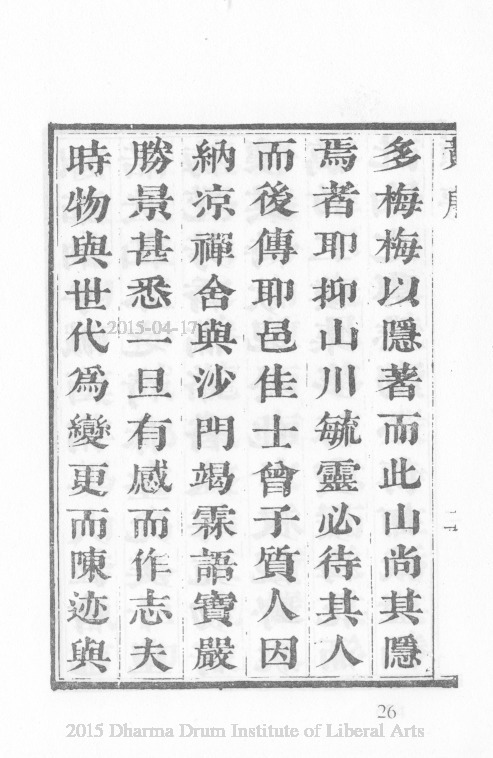 多梅梅以隱著而此山尚其隱
焉者耶抑山川毓靈必待其人
而後傳耶邑佳士曾子質人因
納凉禪舍與沙門竭霖語寶嚴
勝景甚悉一旦有感而作志夫
時物與世代爲變更而陳迹與
2015-04-17
26
2015 Dharma Drum Institute of Liberal Arts